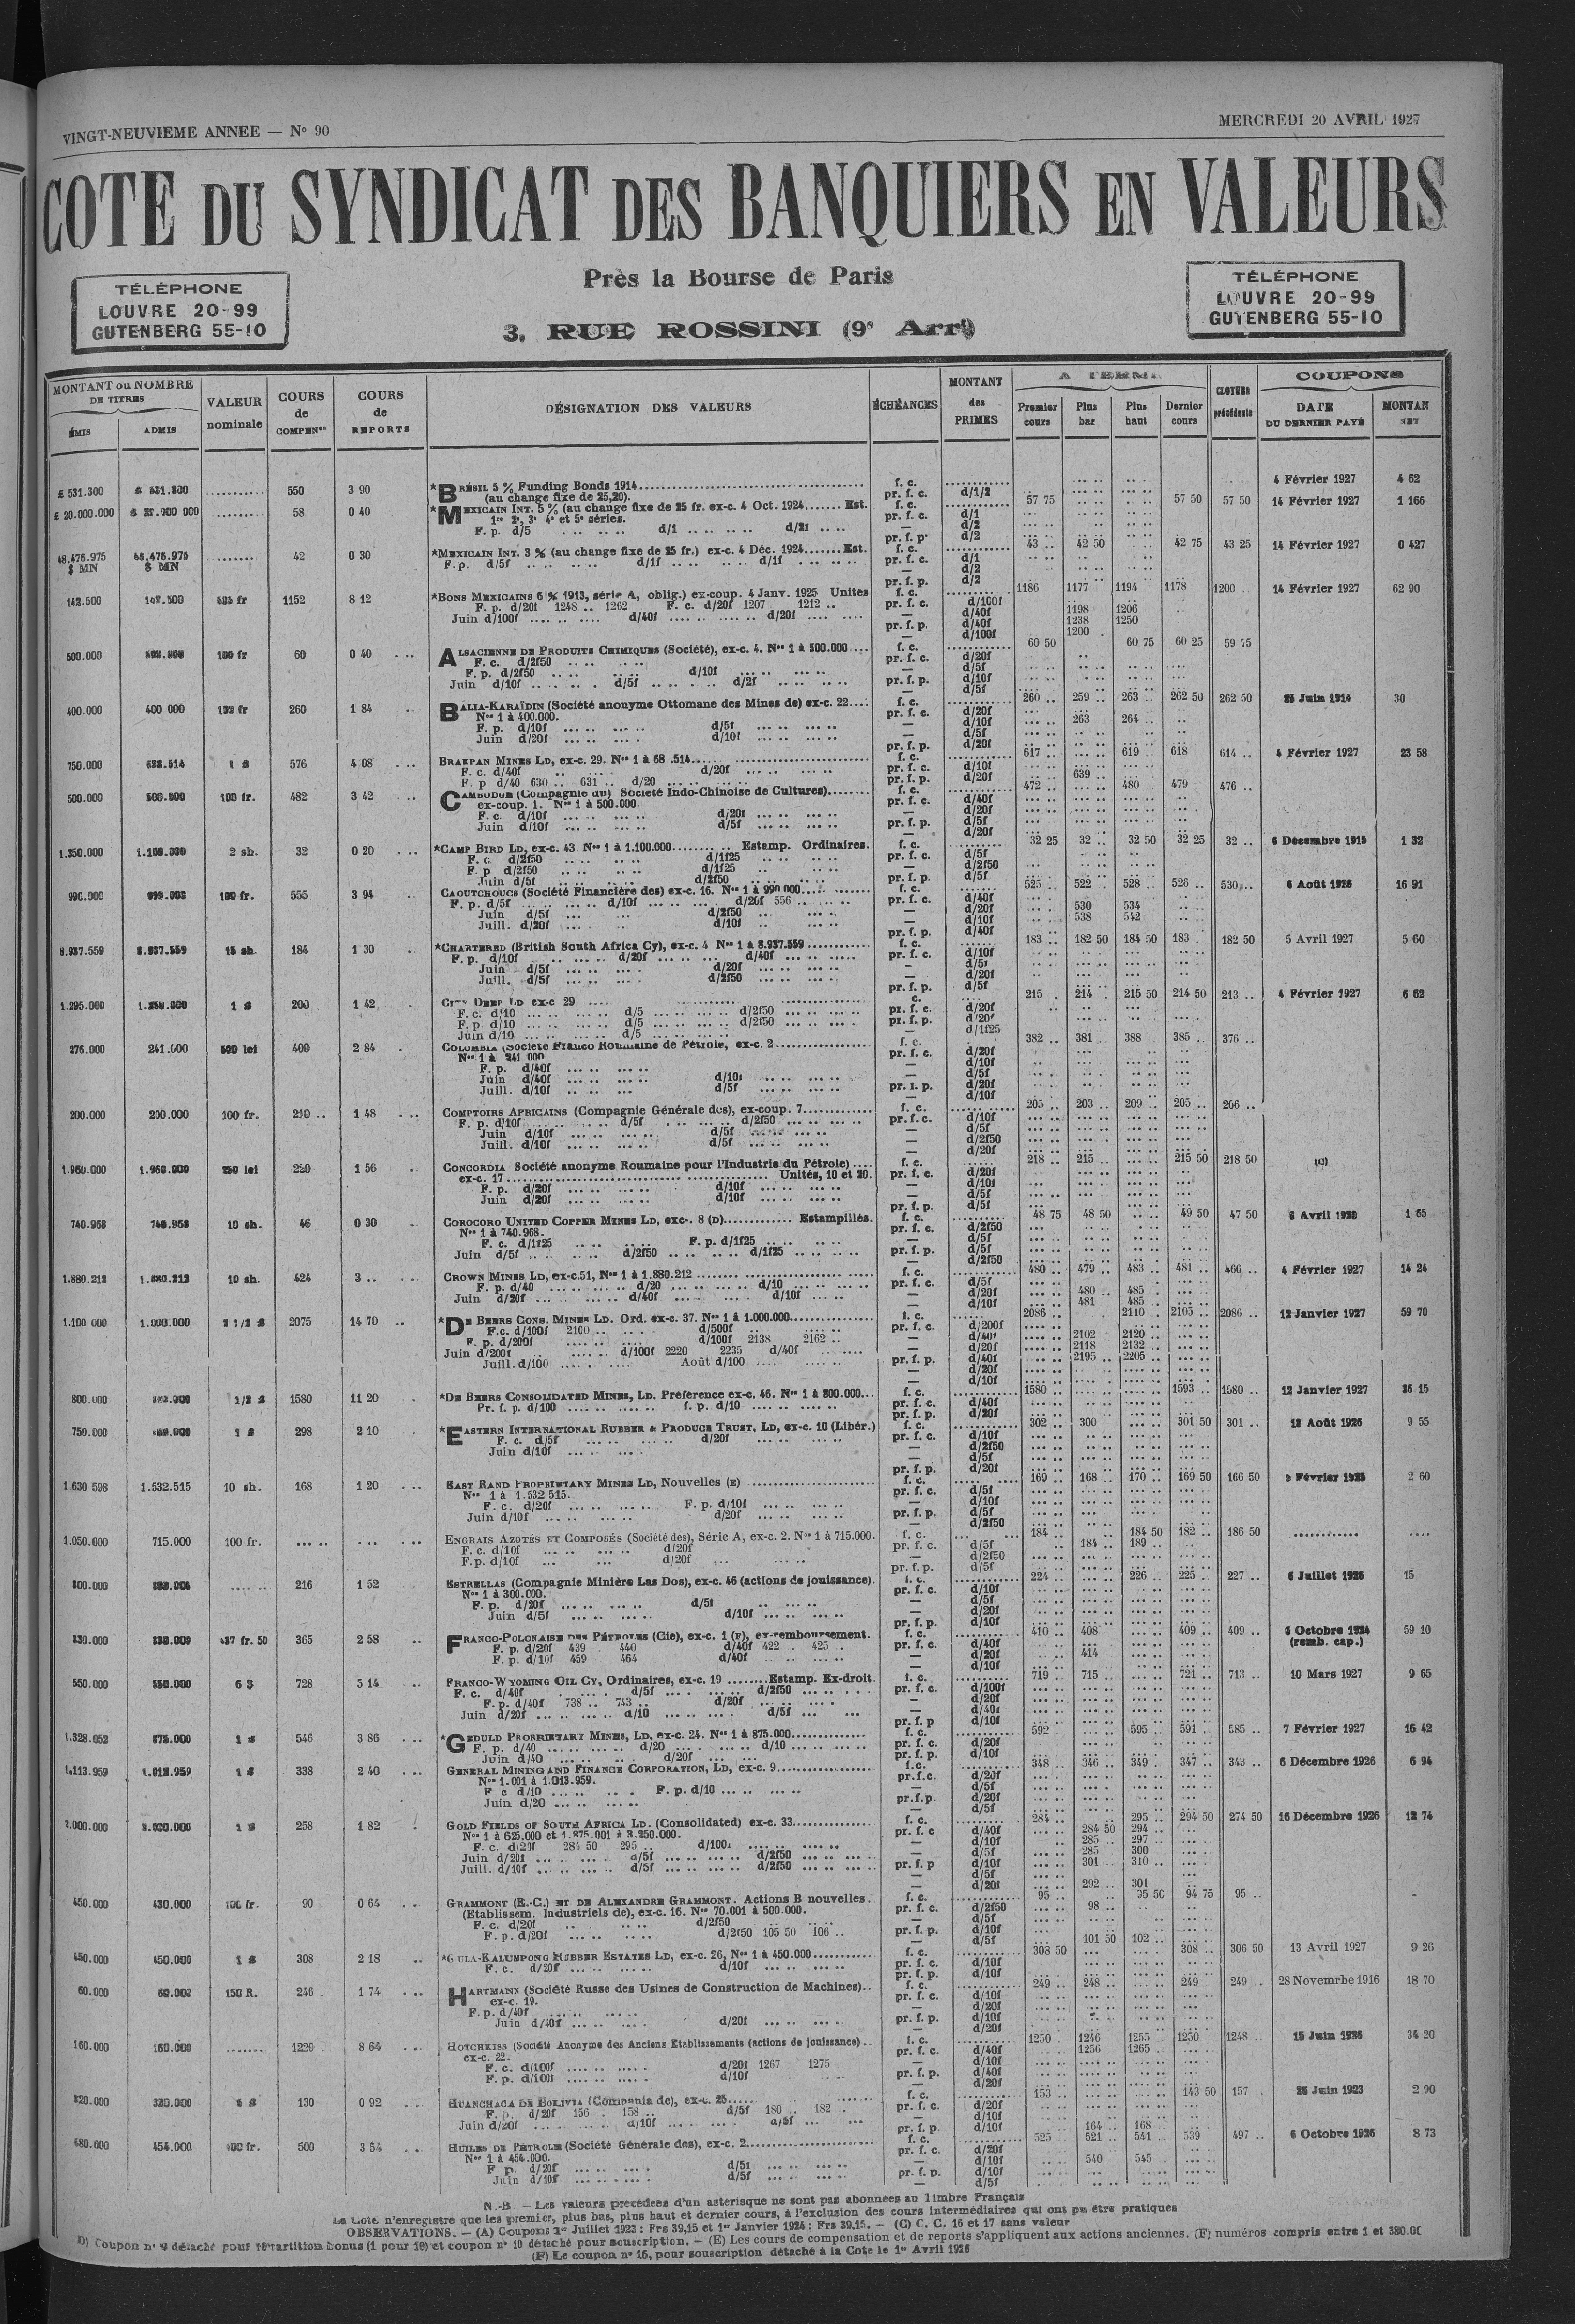 VINGT-NEUVIEME ANNEE — N° 90
MERCREDI 20 AVRIL 1927
COTE DU SYNDICAT DES BANQUIERS EN VALEURS
Près la Bourse de Paris
3, RUE ROSSINI (9e Arrt)
TÉLÉPHONE
LOUVRE 20-99
GUTENBERG 55-10
TÉLÉPHONE
LOUVRE 20-99
GUTENBERG 55-10
MONTANT ou NOMBRE DE TITRES
ÉMIS ADMIS
VALEUR nominale
COURS de COMPENon
COURS de REPORTS
DÉSIGNATION DES VALEURS
ÉCHÉANCES
MONTANT des PRIMES
A TERME
Premier cours Plus bas Plus haut Dernier cours
CLOTURE précédente
COUPONS
DATE DU DERNIER PAYÉ MONTAN NET
£ 531.300 550 3 90 *BRÉSIL 5 % Funding Bonds 1914 f. c. 4 Février 1927 4 62
(au change fixe de 25,20). pr. f. c. d/1/2
£ 20.000.000 58 0 40 *MEXICAIN INT. 5 % (au change fixe de 25 fr. ex-c. 4 Oct. 1924 Est. f. c. 57 75 57 50 57 50 14 Février 1927 1 166
1re 2e, 3e 4e et 5e séries. pr. f. c. d/1
F. p. d/5 d/1 d/2f — d/2
48.476.975 48.476.975 42 0 30 *MEXICAIN INT. 3 % (au change fixe de 25 fr.) ex-c. 4 Déc. 1924 Est. f. c. 43 42 50 42 75 43 25 14 Février 1927 0 427
$ MN $ MN F. p. d/5f d/1f d/1f pr. f. c. d/1
142.500 1152 8 12 *BONS MEXICAINS 6 % 1913, série A, oblig.) ex-coup. 4 Janv. 1925 Unites f. c. 1186 1177 1194 1178 1200 14 Février 1927 62 90
F. p. d/20f 1248 1262 F. c. d/20f 1207 1212 pr. f. c. d/100f
Juin d/100f d/40f d/20f — d/40f 1198 1206
pr. f. p. d/40f 1238 1250
— d/100f 1200
500.000 100 fr 60 0 40 ALSACIENNE DE PRODUITS CHIMIQUES (Société), ex-c. 4. Nos 1 à 500.000 f. c. 60 50 60 75 60 25
F. c. d/2f50 pr. f. c. d/20f
F. p. d/2f50 d/10f — d/5f
Juin d/10f d/5f d/2f pr. f. p. d/10f
400.000 400 000 260 1 84 BALIA-KARAÏDIN (Société anonyme Ottomane des Mines de) ex-c. 22 f. c. 260 259 263 262 50 262 50 25 Juin 1914 30
Nos 1 à 400.000. pr. f. c. d/20f
F. p. d/10f d/5f — d/10f 263 264
Juin d/20f d/10f — d/5f
pr. f. p. d/20f
750.000 576 4 08 BRAKPAN MINES LD, ex-c. 29. f. c. 617 619 618 614 4 Février 1927 23 58
F. c. d/40f d/20f pr. f. c. d/10f
F. p d/40 630 631 d/20 pr. f. p. d/20f 639
500.000 500.000 100 fr. 482 3 42 CAMBODGE (Compagnie du) Société Indo-Chinoise de Cultures) f. c. 472 480 479 476
ex-coup. 1. Nos 1 à 500.000 pr. f. c. d/40f
F. c. d/10f d/20f — d/20f
Juin d/10f d/5f pr. f. p. d/5f
— d/20f
1.350.000 2 sh. 32 0 20 *CAMP BIRD LD, ex-c. 43 Nos 1 à 1.100.000 Estamp. Ordinaires. f. c. 32 25 32 32 50 32 25 32 6 Décembre 1915 1 32
F. c. d/2f50 d/1f25 pr. f. c. d/5f
F. p d/2f50 d/1f25 — d/2f50
Juin d/5f d/2f50 pr. f. p. d/5f
990.000 100 fr. 555 3 94 CAOUTCHOUCS (Société Financière des) ex-c. 16. Nos 1 à 990 000 f. c. 525 522 528 526 530 6 Août 1926 16 91
F. p. d/5f d/10f d/20f 556 pr. f. c. d/40f
Juin d/5f d/2f50 — d/20f 530 534
Juill. d/20f d/10f — d/10f 538 542
pr. f. p. d/40f
8.937.559 8.937.559 15 sh. 184 1 30 *CHARTERED (British South Africa Cy), ex-c. 4 Nos 1 à 8.937.559 f. c. 183 182 50 184 50 183 182 50 5 Avril 1927 5 60
F. p. d/10f d/20f d/40f pr. f. c. d/10f
Juin d/5f d/20f — d/5f
Juill. d/5f d/2f50 — d/20f
pr. f. p. d/5f
1.295.000 200 1 42 CITY DEEP LD ex-c 29 215 214 215 50 214 50 213 4 Février 1927 6 62
F. c. d/10 d/5 d/2f50 pr. f. c. d/20f
F. p d/10 d/5 d/2f50 pr. f. p. d/20f
Juin d/10 d/5 — d/1f25
276.000 241.000 500 lei 400 2 84 COLOMBIA (Société Franco Roumaine de Pétrole, ex-c. 2 f. c. 382 381 388 385 376
Nos 1 à 241 000 pr. f. c. d/20f
F. p. d/40f — d/10f
Juin d/40f d/10f — d/5f
Juill. d/10f d/5f pr. f. p. d/20f
— d/10f
200.000 200.000 100 fr. 210 1 48 COMPTOIRS AFRICAINS (Compagnie Générale des), ex-coup. 7 f. c. 205 203 209 205 206
F. p. d/10f d/5f d/2f50 pr. f. c. d/10f
Juin d/10f d/5f — d/5f
Juill. d/10f d/5f — d/2f50
— d/20f
1.960.000 1.960.000 250 lei 220 1 56 CONCORDIA Société anonyme Roumaine pour l'Industrie du Pétrole) f. c. 218 215 215 50 218 50 (C)
ex-c. 17 Unités, 10 et 20. pr. f. c. d/20f
F. p. d/20f d/10f — d/10f
Juin d/20f d/10f — d/5f
pr. f. p. d/5f
740.968 740.968 10 sh. 46 0 30 COROCORO UNITED COPPER MINES LD, exc-. 8 (D) Estampillés. f. c. 48 75 48 50 49 50 47 50 6 Avril 1920 1 65
Nos 1 à 740.968. pr. f. c. d/2f50
F. c. d/1f25 F. p. d/1f25 — d/5f
Juin d/5f d/2f50 d/1f25 pr. f. p. d/5f
— d/2f50
1.880.212 1.880.212 10 sh. 424 3 CROWN MINES LD, ex-c.51, Nos 1 à 1.880.212 f. c. 480 479 483 481 466 4 Février 1927 14 24
F. p. d/40 d/20 d/10 pr. f. c. d/5f
Juin d/20f d/40f d/10f — d/20f 480 485
— d/10f 481 485
1.100 000 1.000.000 2 1/2 £ 2075 14 70 *DE BEERS CONS. MINES LD. Ord. ex-c. 37. Nos 1 à 1.000.000 f. c. 2086 2110 2105 2086 12 Janvier 1927 59 70
F.c. d/100f 2100 d/500f pr. f. c. d/200f
F. p. d/200f d/100f 2138 2162 — d/40f 2102 2120
Juin d/200f d/100f 2220 2235 d/40f — d/20f 2118 2132
Juill. d/100 Août d/100 pr. f. p. d/40f 2195 2205
— d/20f
— d/10f
800.000 1580 11 20 *DE BEERS CONSOLIDATED MINES, LD. Préférence ex-c. 46. Nos 1 à 800.000 f. c. 1580 1593 1580 12 Janvier 1927 36 15
Pr. f. p. d/100 f. p. d/10 pr. f. c. d/40f
pr. f. p. d/20f
750.000 298 2 10 *EASTERN INTERNATIONAL RUBBER & PRODUCE TRUST, LD, ex-c. 10 (Libér.) f. c. 302 300 301 50 301 18 Août 1926 9 55
F. c. d/5f d/20f pr. f. c. d/10f
Juin d/10f — d/2f50
— d/5f
pr. f. p. d/20f
1.630 598 1.532.515 10 sh. 168 1 20 EAST RAND PROPRIETARY MINES LD, Nouvelles (E) f. c. 169 168 170 169 50 166 50 2 60
Nos 1 à 1.532 515. pr. f. c. d/5f
F. c. d/20f F. p. d/10f — d/10f
Juin d/10f d/20f pr. f. p. d/5f
— d/2f50
1.050.000 715.000 100 fr. ENGRAIS AZOTÉS ET COMPOSÉS (Société des), Série A, ex-c. 2. Nos 1 à 715.000. f. c. 184 184 50 182 186 50
F. c. d/10f d/20f pr. f. c. d/5f 184 189
F.p. d/10f d/20f — d/2f50
pr. f. p. d/5f
300.000 216 1 52 ESTRELLAS (Compagnie Minière Las Dos), ex-c. 46 (actions de jouissance). f. c. 224 226 225 227 6 Juillet 1926 15
Nos 1 à 300.000. pr. f. c. d/10f
F. p. d/20f d/5f — d/5f
Juin d/5f d/10f — d/20f
pr. f. p. d/10f
330.000 330.000 437 fr. 50 365 2 58 FRANCO-POLONAISE DES PÉTROLES (Cie), ex-c. 1 (F), ex-remboursement. f. c. 410 408 409 409 Octobre 1924 59 10
F. p. d/20f 439 440 d/40f 422 425 pr. f. c. d/40f (remb. cap.)
F. p. d/10f 459 464 d/40f — d/20f 414
— d/10f
550.000 550.000 728 5 14 FRANCO-WYOMING OIL CY, Ordinaires, ex-c. 19 Estamp. Ex-droit. f. c. 719 715 721 713 10 Mars 1927 9 65
F. c. d/40f d/5f d/2f50 pr. f. c. d/100f
F. p. d/40f 738 743 d/20f — d/20f
Juin d/20f d/10 d/5f — d/40f
pr. f. p d/10f
1.328.052 875.000 1 £ 546 3 86 *GEDULD PROPRIETARY MINES, LD, ex-c. 24. Nos 1 à 875.000 f. c. 592 595 591 585 7 Février 1927 16 42
F. p. d/40 d/20 d/10 pr. f. c. d/20f
Juin d/40 d/20f pr. f. p. d/10f
1.113.959 1.013.959 1 £ 338 2 40 GENERAL MINING AND FINANCE CORPORATION, LD, ex-c. 9 f.c. 348 346 349 347 343 6 Décembre 1926 6 94
Nos 1.001 à 1.013.959. pr.f.c. d/20f
F c d/10 F. p. d/10 — d/5f
Juin d/20 pr.f.p. d/20f
— d/5f
3.000.000 1 £ 258 1 82 GOLD FIELDS OF SOUTH AFRICA LD. (Consolidated) ex-c. 33 f. c. 284 295 294 50 274 50 16 Décembre 1926 12 74
Nos 1 à 625.000 et 1.875.001 à 3.250.000. pr. f. c d/40f 284 50 294
F. c. d/20f 284 50 295 d/100f — d/10f 285 297
Juin d/20f d/5f d/2f50 — d/5f 285 300
Juill. d/10f d/5f d/2f50 pr. f. p d/10f 301 310
— d/5f
— d/20f 292 301
450.000 430.000 100 fr. 90 0 64 GRAMMONT (E.-C.) ET DE ALEXANDRE GRAMMONT. Actions B nouvelles. f. c. 95 95 50 94 75 95
(Etablissem. Industriels de), ex-c. 16. Nos 70.001 à 500.000. pr. f. c. d/2f50 98
F. c. d/20f d/2f50 — d/5f
F. p. d/20f d/2f50 105 50 106 pr. f. p. d/10f
— d/5f 101 50 102
450.000 450.000 1 £ 308 2 18 *GULA-KALUMPONG RUBBER ESTATES LD, ex-c. 26, Nos 1 à 450.000 f. c. 308 50 308 306 50 13 Avril 1927 9 26
F. c. d/20f d/10f pr. f. c. d/10f
pr. f. p. d/10f
60.000 60.000 150 R. 246 1 74 HARTMANN (Société Russe des Usines de Construction de Machines) f. c. 249 248 249 249 28 Novemrbe 1916 18 70
ex-c. 19. pr. f. c. d/10f
F. p. d/40f — d/20f
Juin d/40f d/20f pr. f. p. d/10f
— d/20f
160.000 160.000 1229 8 64 HOTCHKISS (Société Anonyme des Anciens Etablissements (actions de jouissance) f. c. 1250 1246 1255 1250 1248 15 Juin 1926 34 20
ex-c. 22. pr. f. c. d/40f 1256 1265
F. c. d/100f d/20f 1267 1275 — d/10f
F. p. d/100f d/10f pr. f. p. d/40f
— d/20f
320.000 320.000 130 0 92 HUANCHACA DE BOLIVIA (Compania de), ex-c. 25 f. c. 153 143 50 157 25 Juin 1923 2 90
F. p. d/20f 156 158 d/5f 180 182 pr. f. c. d/20f
Juin d/20f d/10f d/5f — d/10f
pr. f. p. d/10f 164 168
480.000 454.000 100 fr. 500 3 54 HUILES DE PÉTROLE (Société Générale des), ex-c. 2 f. c. 525 521 541 539 497 6 Octobre 1926 8 73
Nos 1 à 454.000. pr. f. c. d/20f
F p. d/20f d/5f — d/10f 540 545
Juin d/10f d/5f pr. f. p. d/10f
— d/5f
N.-B. — Les valeurs précédées d'un astérisque ne sont pas abonnées au Timbre Français
La Cote n'enregistre que les premier, plus bas, plus haut et dernier cours, à l'exclusion des cours intermédiaires qui ont pu être pratiques
OBSERVATIONS. — (A) Coupons 1er Juillet 1923 : Frs 39,15 et 1er Janvier 1924 : Frs 39.15. — (C) C. C. 16 et 17 sans valeur
D) Coupon n° 9 détaché pour répartition bonus (1 pour 10) et coupon n° 10 détaché pour souscription. — (E) Les cours de compensation et de reports s'appliquent aux actions anciennes. (F) numéros compris entre 1 et 380.00
(F) Le coupon n° 15, pour souscription détaché à la Cote le 1er Avril 1926